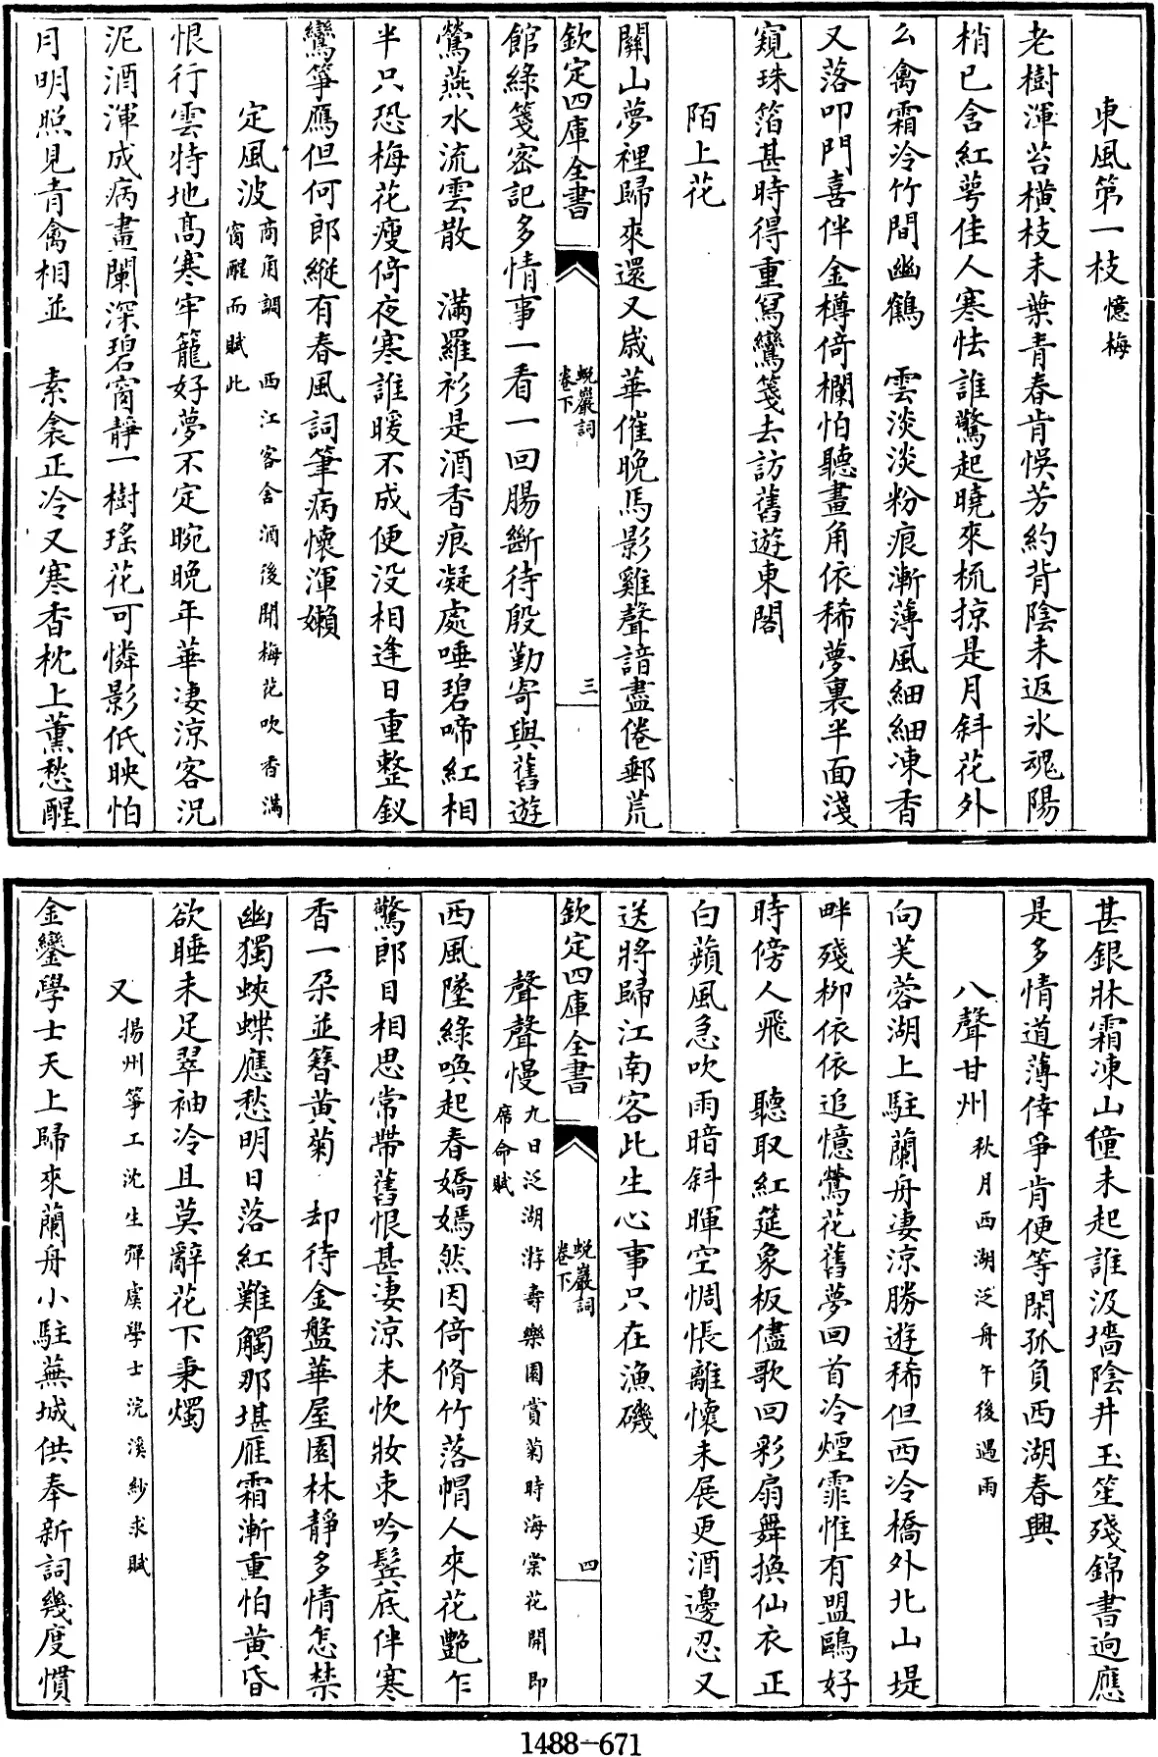 東風第一枝憶梅
老樹渾苔橫枝未葉青春肯悞芳約背陰未返氷魂陽
梢已含紅萼佳人寒怯誰驚起曉來梳掠是月斜花外
么禽霜冷竹間幽鶴　雲淡淡粉痕漸薄風細細凍香
又落叩門喜伴金樽倚欄怕聽畫角依稀夢裏半面淺
窺珠箔甚時得重寫鸞箋去訪舊遊東閣
陌上花
關山夢裡歸來還又歲華催晚馬影雞聲諳盡倦郵荒
欽定四庫全書
蛻巖詞
卷下
三
館綠箋密記多情事一看一回腸斷待殷勤寄與舊遊
鶯燕水流雲散　滿羅衫是酒香痕凝處唾碧啼紅相
半只恐梅花瘦倚夜寒誰暖不成便没相逢日重整釵
鸞箏鴈但何郎縱有春風詞筆病懷渾嬾
定風波商角調　西江客舍酒後聞梅花吹香滿
窗醒而賦此
恨行雲特地髙寒牢籠好夢不定晼晚年華凄涼客况
泥酒渾成病畫闌深碧窗靜一樹瑤花可憐影低映怕
月明照見青禽相並　素衾正冷又寒香枕上薰愁醒
甚銀牀霜凍山僮未起誰汲墻陰井玉笙殘錦書逈應
是多情道薄倖爭肯便等閑孤負西湖春興
八聲甘州秋月西湖泛舟午後遇雨
向芙蓉湖上駐蘭舟凄涼勝遊稀但西泠橋外北山堤
畔殘柳依依追憶鶯花舊夢回首冷煙霏惟有盟鷗好
時傍人飛　聽取紅筵象板儘歌回彩扇舞換仙衣正
白蘋風急吹雨暗斜暉空惆悵離懷未展更酒邊忍又
送將歸江南客此生心事只在漁磯
欽定四庫全書
蛻巖詞
卷下
四
聲聲慢九日泛湖游壽樂園賞菊時海棠花開即
席命賦
西風墜綠喚起春嬌嫣然因倚脩竹落帽人來花艷乍
驚郎目相思常帶舊恨甚凄涼未忺妝束吟鬂底伴寒
香一朶並簪黃菊　却待金盤華屋園林靜多情怎禁
幽獨蛺蝶應愁明日落紅難觸那堪雁霜漸重怕黃昏
欲睡未足翠袖冷且莫辭花下秉燭
又揚州箏工沈生彈虞學士浣溪紗求賦
金鑾學士天上歸來蘭舟小駐蕪城供奉新詞幾度慣
1488-671